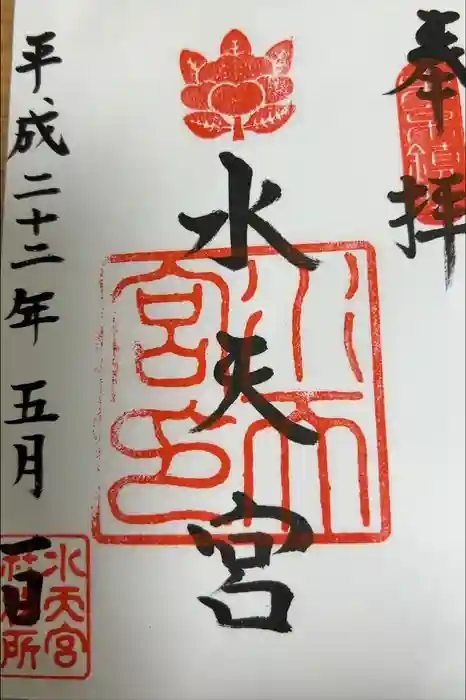 奉拝
水天宮
水天宮印
平成二十二年五月一日
水天宮
社務所